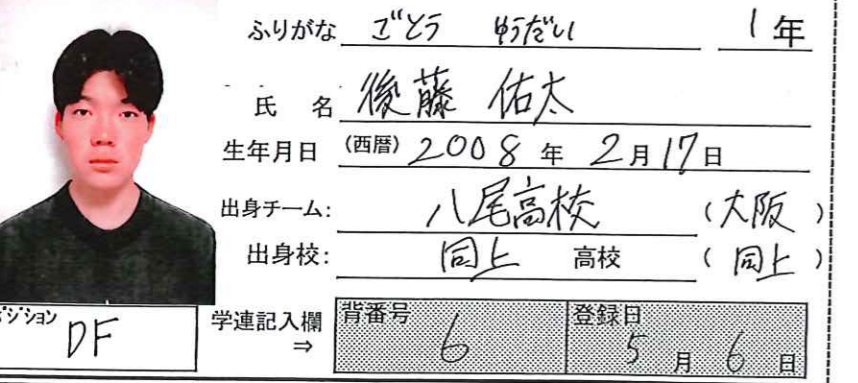 ふりがな ごとう ゆうだい 1年
氏 名 後藤 佑太
生年月日 (西暦) 2008 年 2月17日
出身チーム: 八尾高校 (大阪)
出身校: 同上 高校 (同上)
ポジション DF 学連記入欄 ⇒ 背番号 6 登録日 5月6日